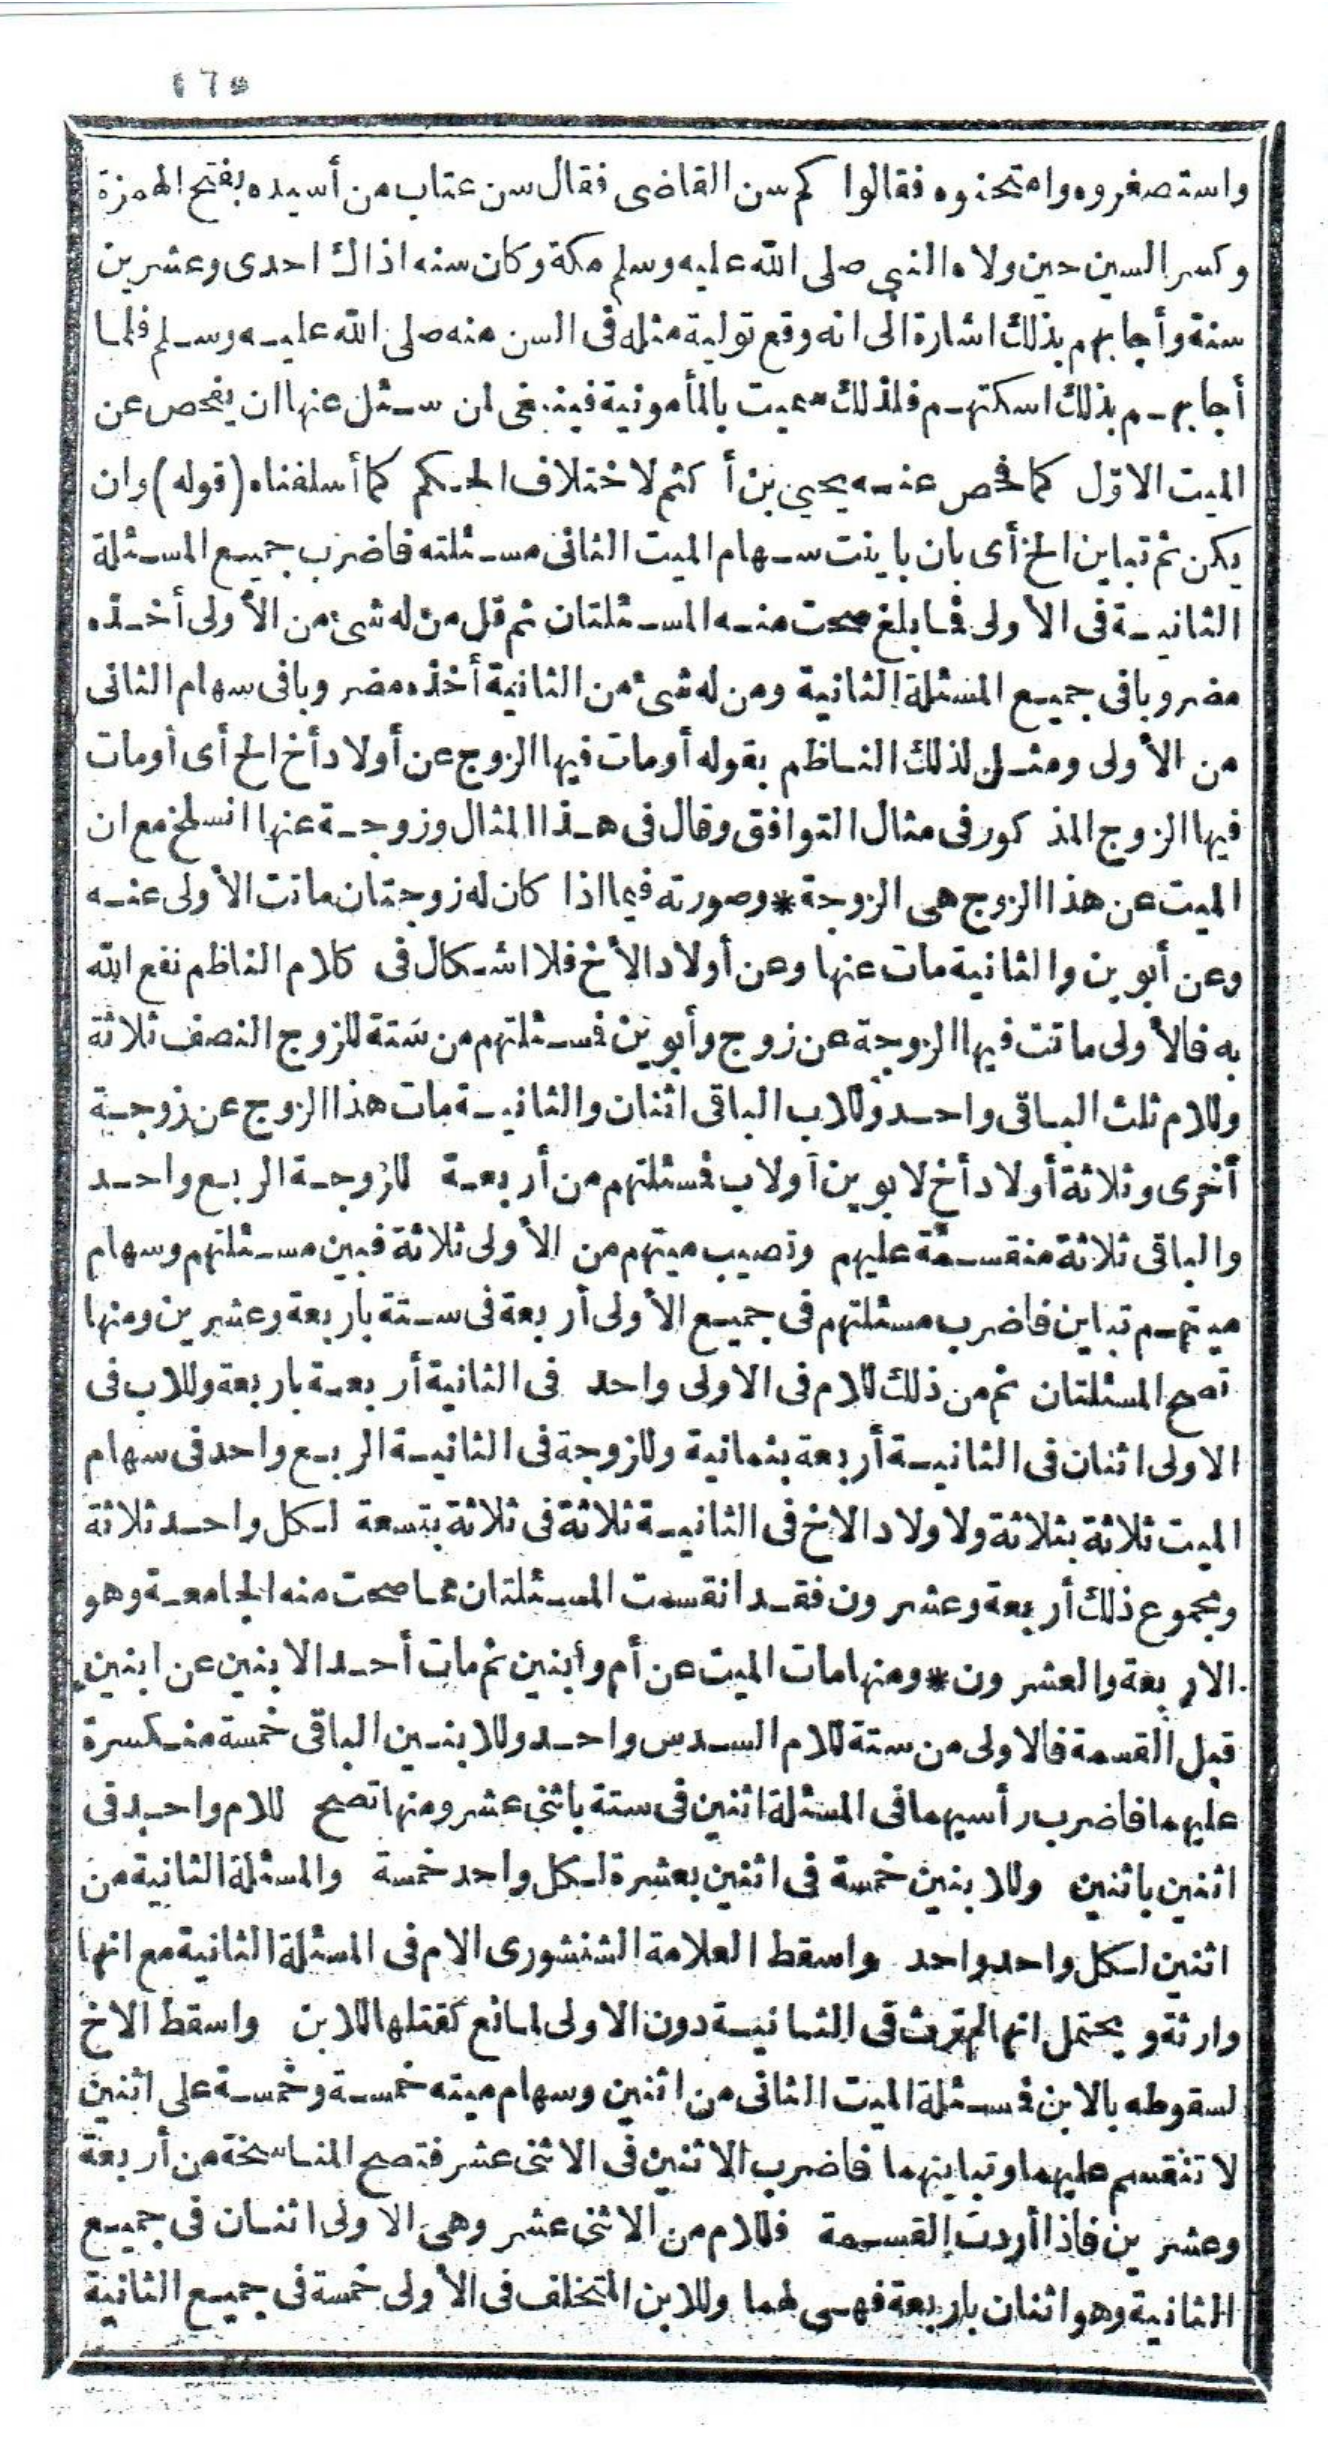 ١٦٥
واستصغروه وامتحنوه فقالوا كم سن القاضى فقال سن عتاب من أسيده بفتح الهمزة
وكسر السين حين ولاه النبي صلى الله عليه وسلم مكة وكان سنه اذاك احدى وعشرين
سنة وأجابهم بذلك اشارة الى انه وقع تولية مثله فى السن منه صلى الله عليه وسلم فلما
أجابهم بذلك اسكتهم فلذلك سميت بالمأمونية فينبغى لمن سئل عنها ان يفحص عن
الميت الاوّل كما فحص عنه يحيى بن أكثم لاختلاف الحكم كما أسلفناه (قوله) وان
يكن ثم تباين الخ أى بان باينت سهام الميت الثانى مسئلته فاضرب جميع المسئلة
الثانية فى الأولى فما بلغ صحت منه المسئلتان ثم قل من له شئ من الأولى أخذه
مضروبا فى جميع المسئلة الثانية ومن له شئ من الثانية أخذه مضروبا فى سهام الثانى
من الأولى ومثل لذلك الناظم بقوله أومات فيها الزوج عن أولاد أخ الخ أى أومات
فيها الزوج المذكور فى مثال التوافق وقال فى هذا المثال وزوجة عنها انسلخ مع ان
الميت عن هذا الزوج هى الزوجة * وصورته فيما اذا كان له زوجتان ماتت الأولى عنه
وعن أبوين والثانية مات عنها وعن أولاد الأخ فلا اشكال فى كلام الناظم نفع الله
به فالأولى ماتت فيها الزوجة عن زوج وأبوين فمسئلتهم من ستة للزوج النصف ثلاثة
وللام ثلث الباقى واحد وللاب الباقى اثنان والثانية مات هذا الزوج عن زوجة
أخرى وثلاثة أولاد أخ لابوين أولاب فمسئلتهم من أربعة للزوجة الربع واحد
والباقى ثلاثة منقسمة عليهم ونصيب ميتهم من الأولى ثلاثة فبين مسئلتهم وسهام
ميتهم تباين فاضرب مسئلتهم فى جميع الأولى أربعة فى ستة بأربعة وعشرين ومنها
تصح المسئلتان ثم من ذلك للام فى الاولى واحد فى الثانية أربعة باربعة وللاب فى
الاولى اثنان فى الثانية أربعة بثمانية وللزوجة فى الثانية الربع واحد فى سهام
الميت ثلاثة بثلاثة ولاولاد الاخ فى الثانية ثلاثة فى ثلاثة بتسعة لكل واحد ثلاثة
ومجموع ذلك أربعة وعشرون فقد انقسمت المسئلتان مما صحت منه الجامعة وهو
الاربعة والعشرون * ومنها مات الميت عن أم وابنين ثم مات أحد الابنين عن ابنين
قبل القسمة فالاولى من ستة للام السدس واحد وللابنين الباقى خمسة منكسرة
عليهما فاضرب رأسيهما فى المسئلة اثنين فى ستة باثنى عشر ومنها تصح للام واحد فى
اثنين باثنين وللابنين خمسة فى اثنين بعشرة لكل واحد خمسة والمسئلة الثانية من
اثنين لكل واحد واحد واسقط العلامة الشنشورى الام فى المسئلة الثانية مع انها
وارثة ويحتمل انها لم ترث فى الثانية دون الاولى لمانع كقتلها للابن واسقط الاخ
لسقوطه بالابن فمسئلة الميت الثانى من اثنين وسهام ميته خمسة وخمسة على اثنين
لا تنقسم عليهما وتباينهما فاضرب الاثنين فى الاثنى عشر فتصح المناسخة من أربعة
وعشرين فاذا أردت القسمة فللام من الاثنى عشر وهى الاولى اثنان فى جميع
الثانية وهو اثنان باربعة فهى لهما وللابن المتخلف فى الأولى خمسة فى جميع الثانية